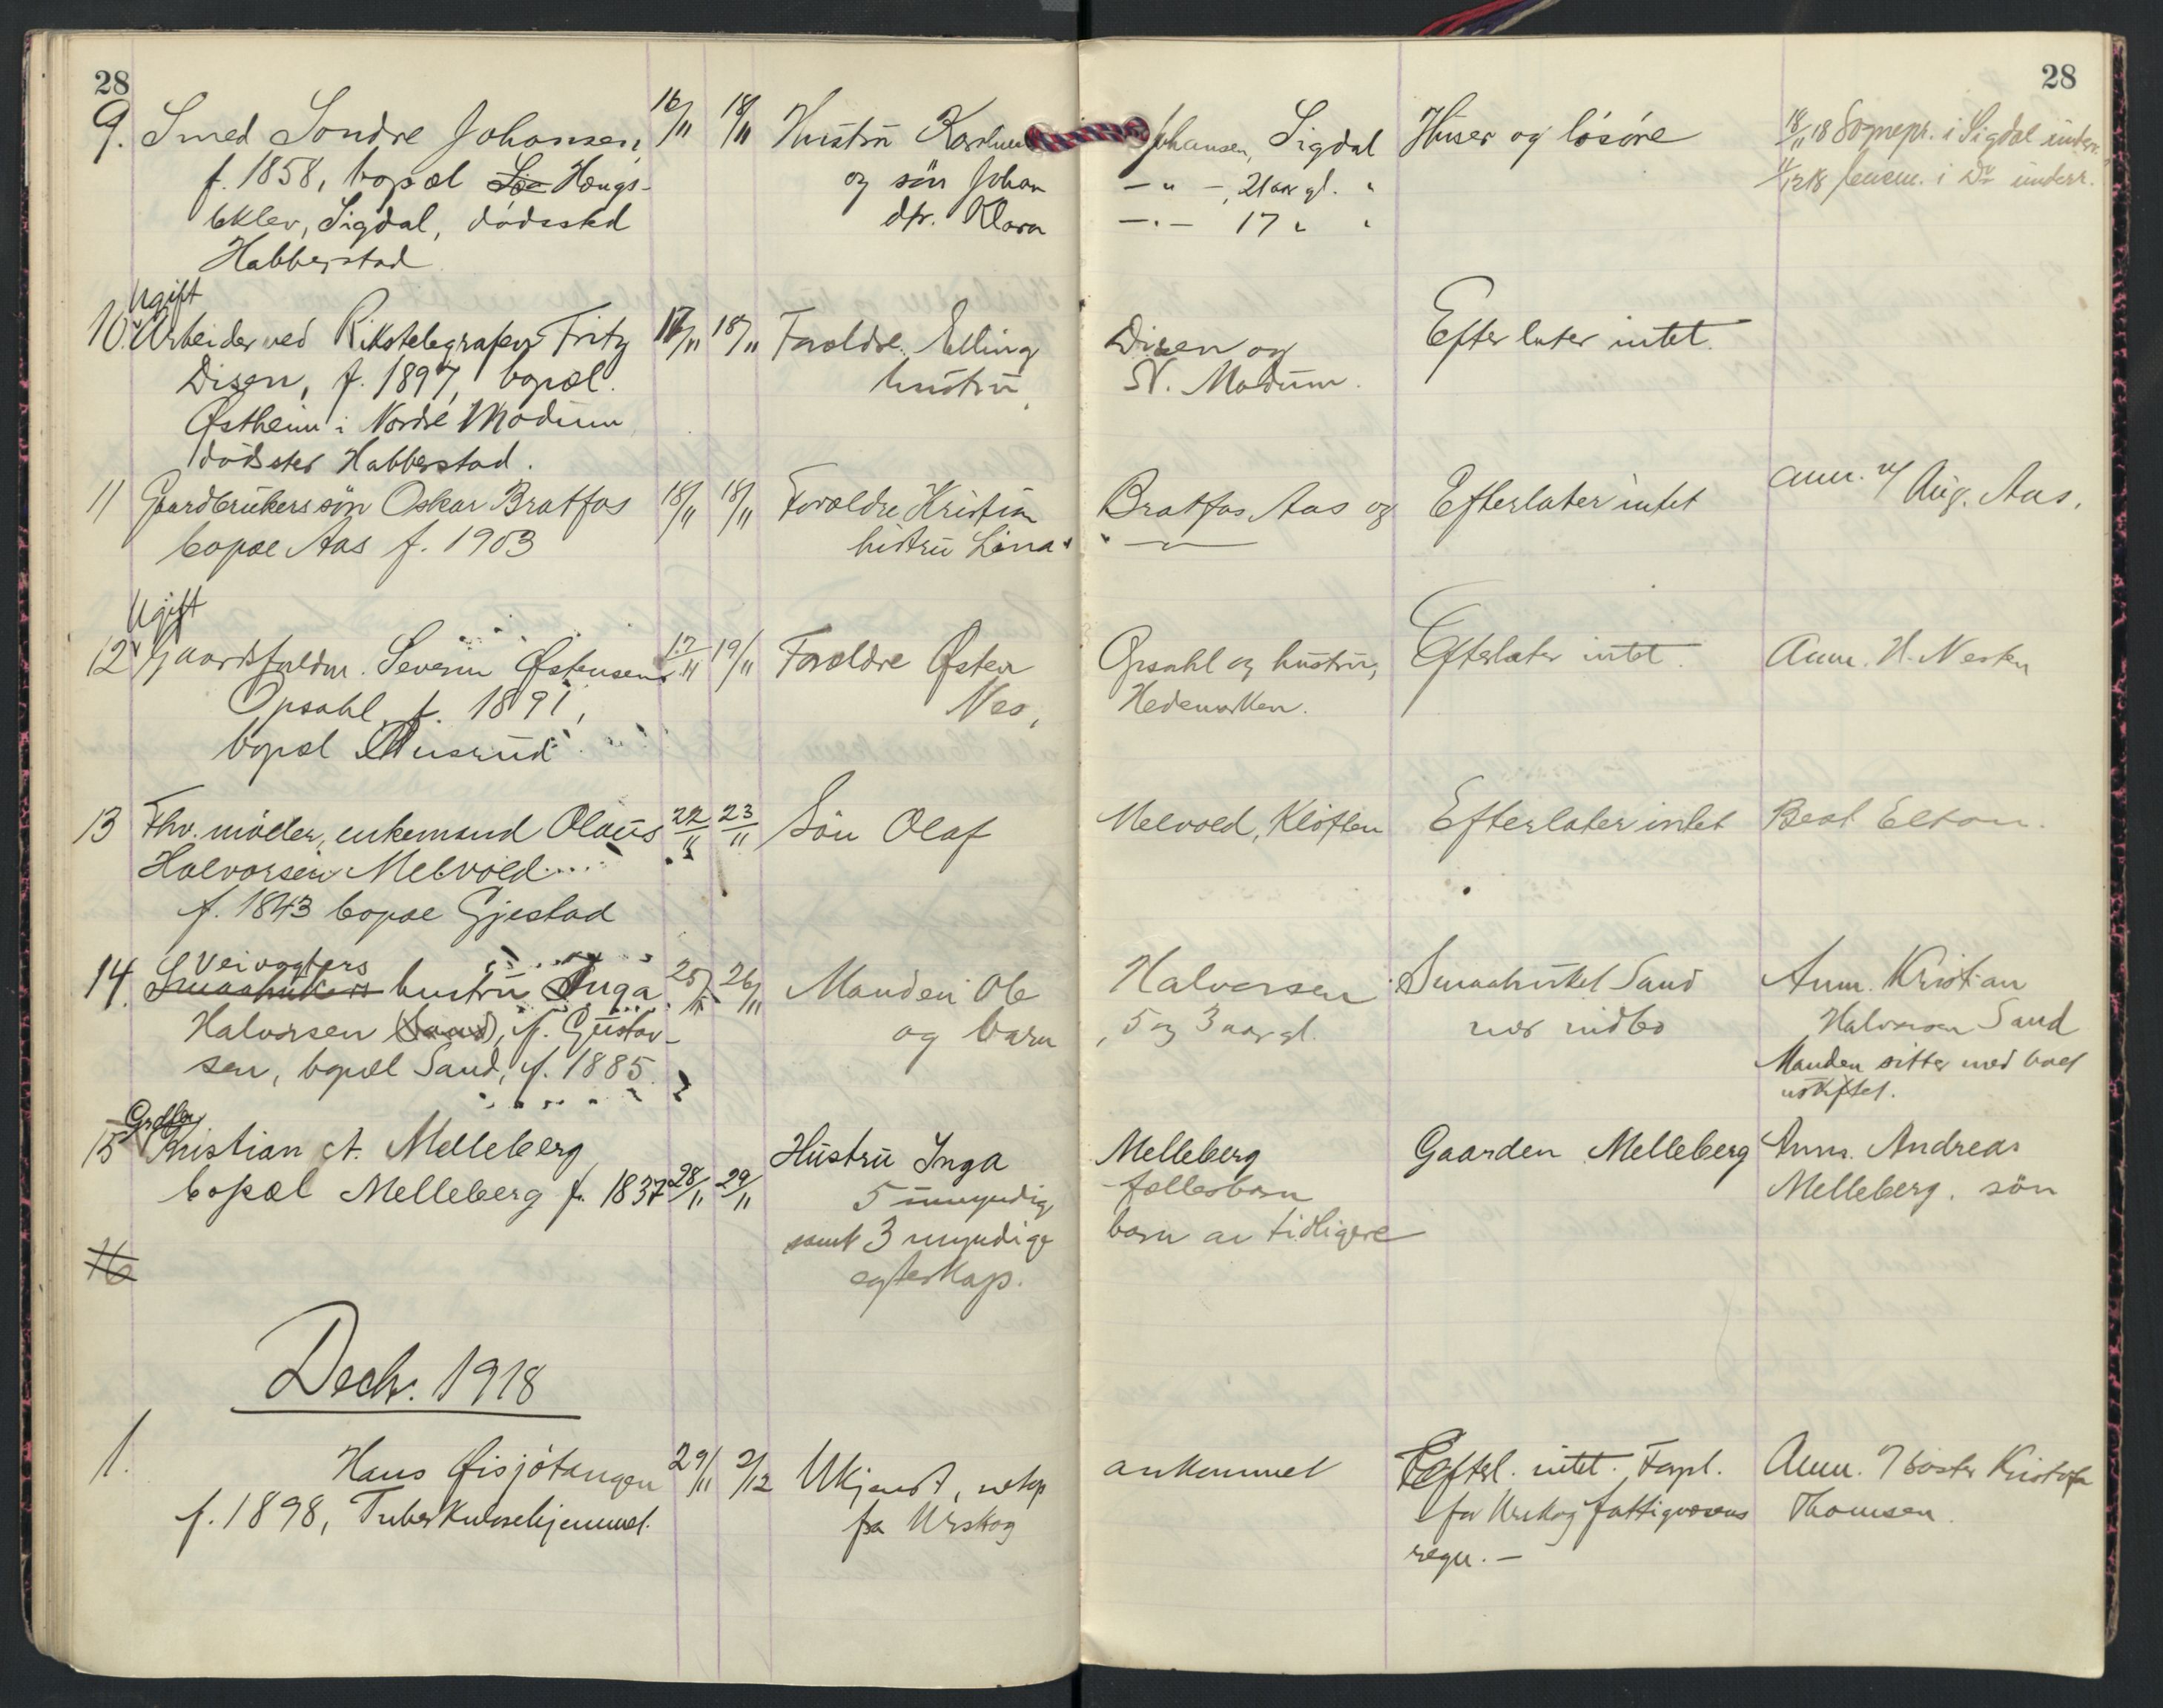 28
28
9. Smed Søndre Johansen, 16/11 18/11 Hustru Karoline Johansen, Sigdal Huser og løsøre 18/11 18 Sognepr. i Sigdal underr.
f. 1858, bopæl Hougs- og søn Johan — " —, 21 aar gl. " 11/12 18 lensm. i Do underr.
eklev, Sigdal, dødssted dtr. Klara — " — 17 " "
Habberstad
Ugift
10. Arbeider ved Rikstelegrafen Fritz 17/11 18/11 Forældre Elling Disen og Efterlater intet.
Disen, f. 1897, bopæl hustru, N. Modum.
Østheim i Nordre Modum
dødssted Habberstad.
11 Gaardbrukerssøn Oskar Bratfos 18/11 18/11 Forældre Kristian Bratfos Aas og Efterlater intet anm. v/ Aug. Aas.
bopæl Aas f. 1903 hustru Lina " — " —
Ugift
12 Gaardsfuldm. Severin Østensen 17/11 19/11 Forældre Østen Opsahl og hustru, Efterlater intet. Anm. H. Nesten
Opsahl, f. 1891, Nes, Hedemarken.
bopæl
13 Fhv. møller, enkemand Olaus 22/11 23/11 Søn Olaf Melvold, Kløften Efterlater intet Best Elton.
Halvorsen Melvold
f. 1843 bopæl Gjestad
Veivogters
14. Smaabrukers hustru Inga 25/11 26/11 Manden Ole Halvorsen Smaabruket Sand Anm. Kristian
Halvorsen (Sand), f. Gustav- og barn , 5 og 3 aar gl. med indbo Halvorsen Sand
sen, bopæl Sand, f. 1885. Manden sitter med boet
uskiftet.
15 Kristian A. Melleberg Hustru Inga Melleberg Gaarden Melleberg Anm. Andreas
bopæl Melleberg f. 1837 28/11 29/11 5 umyndig fællesbarn Melleberg. søn
samt 3 myndige barn av tidligere
16 egteskap.
Decbr. 1918
1. Hans Øisjøtangen 29/11 2/12 Ukjendt, netop ankommet Efterl. intet. Forpl. Anm. Kristofa
f. 1898, Tuberkulosehjemmet. fra Urskog for Urskog fattigvæsens Thomsen.
regn. —